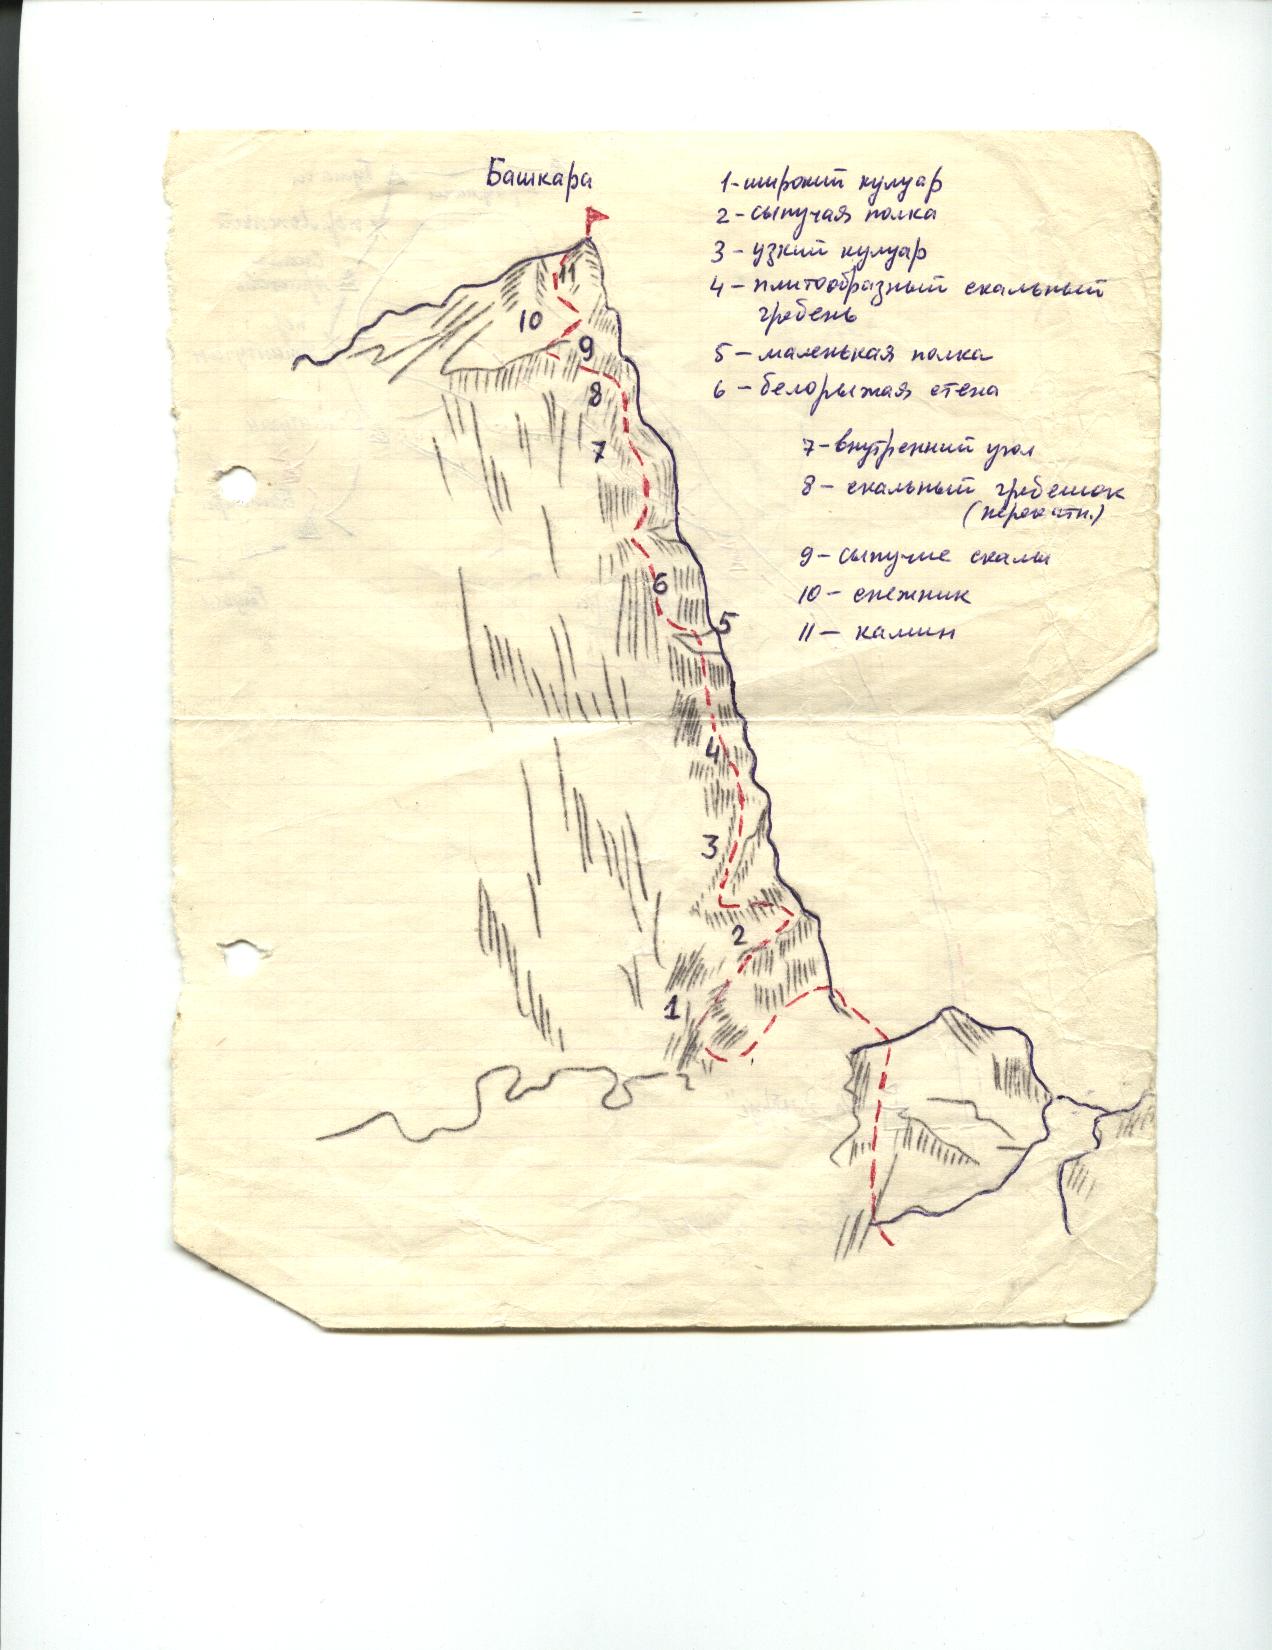 Башкара
1-широкий кулуар
2-сыпучая полка
3-узкий кулуар
4-плитообразный скальный
гребень
5-маленькая полка
6-белорыжая стена
7-внутренний угол
8-скальный гребешок
9-сыпучие скалы
10-снежник
11-камин
11
10
9
8
7
6
5
4
3
2
1